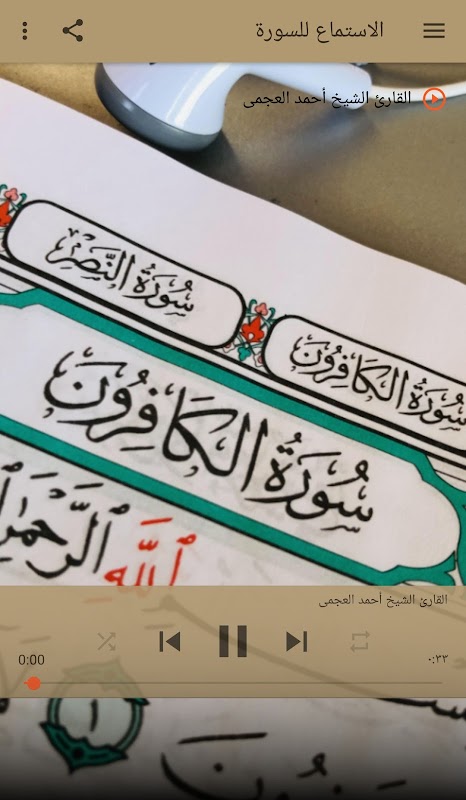 الاستماع للسورة
القارئ الشيخ أحمد العجمى
سُورَةُ النَّصْرِ
سُورَةُ الكَافِرُونَ
سُورَةُ الكَافِرُونَ
ٱللَّهِ ٱلرَّحْمَٰنِ
القارئ الشيخ أحمد العجمى
0:00
٠:٣٣
١